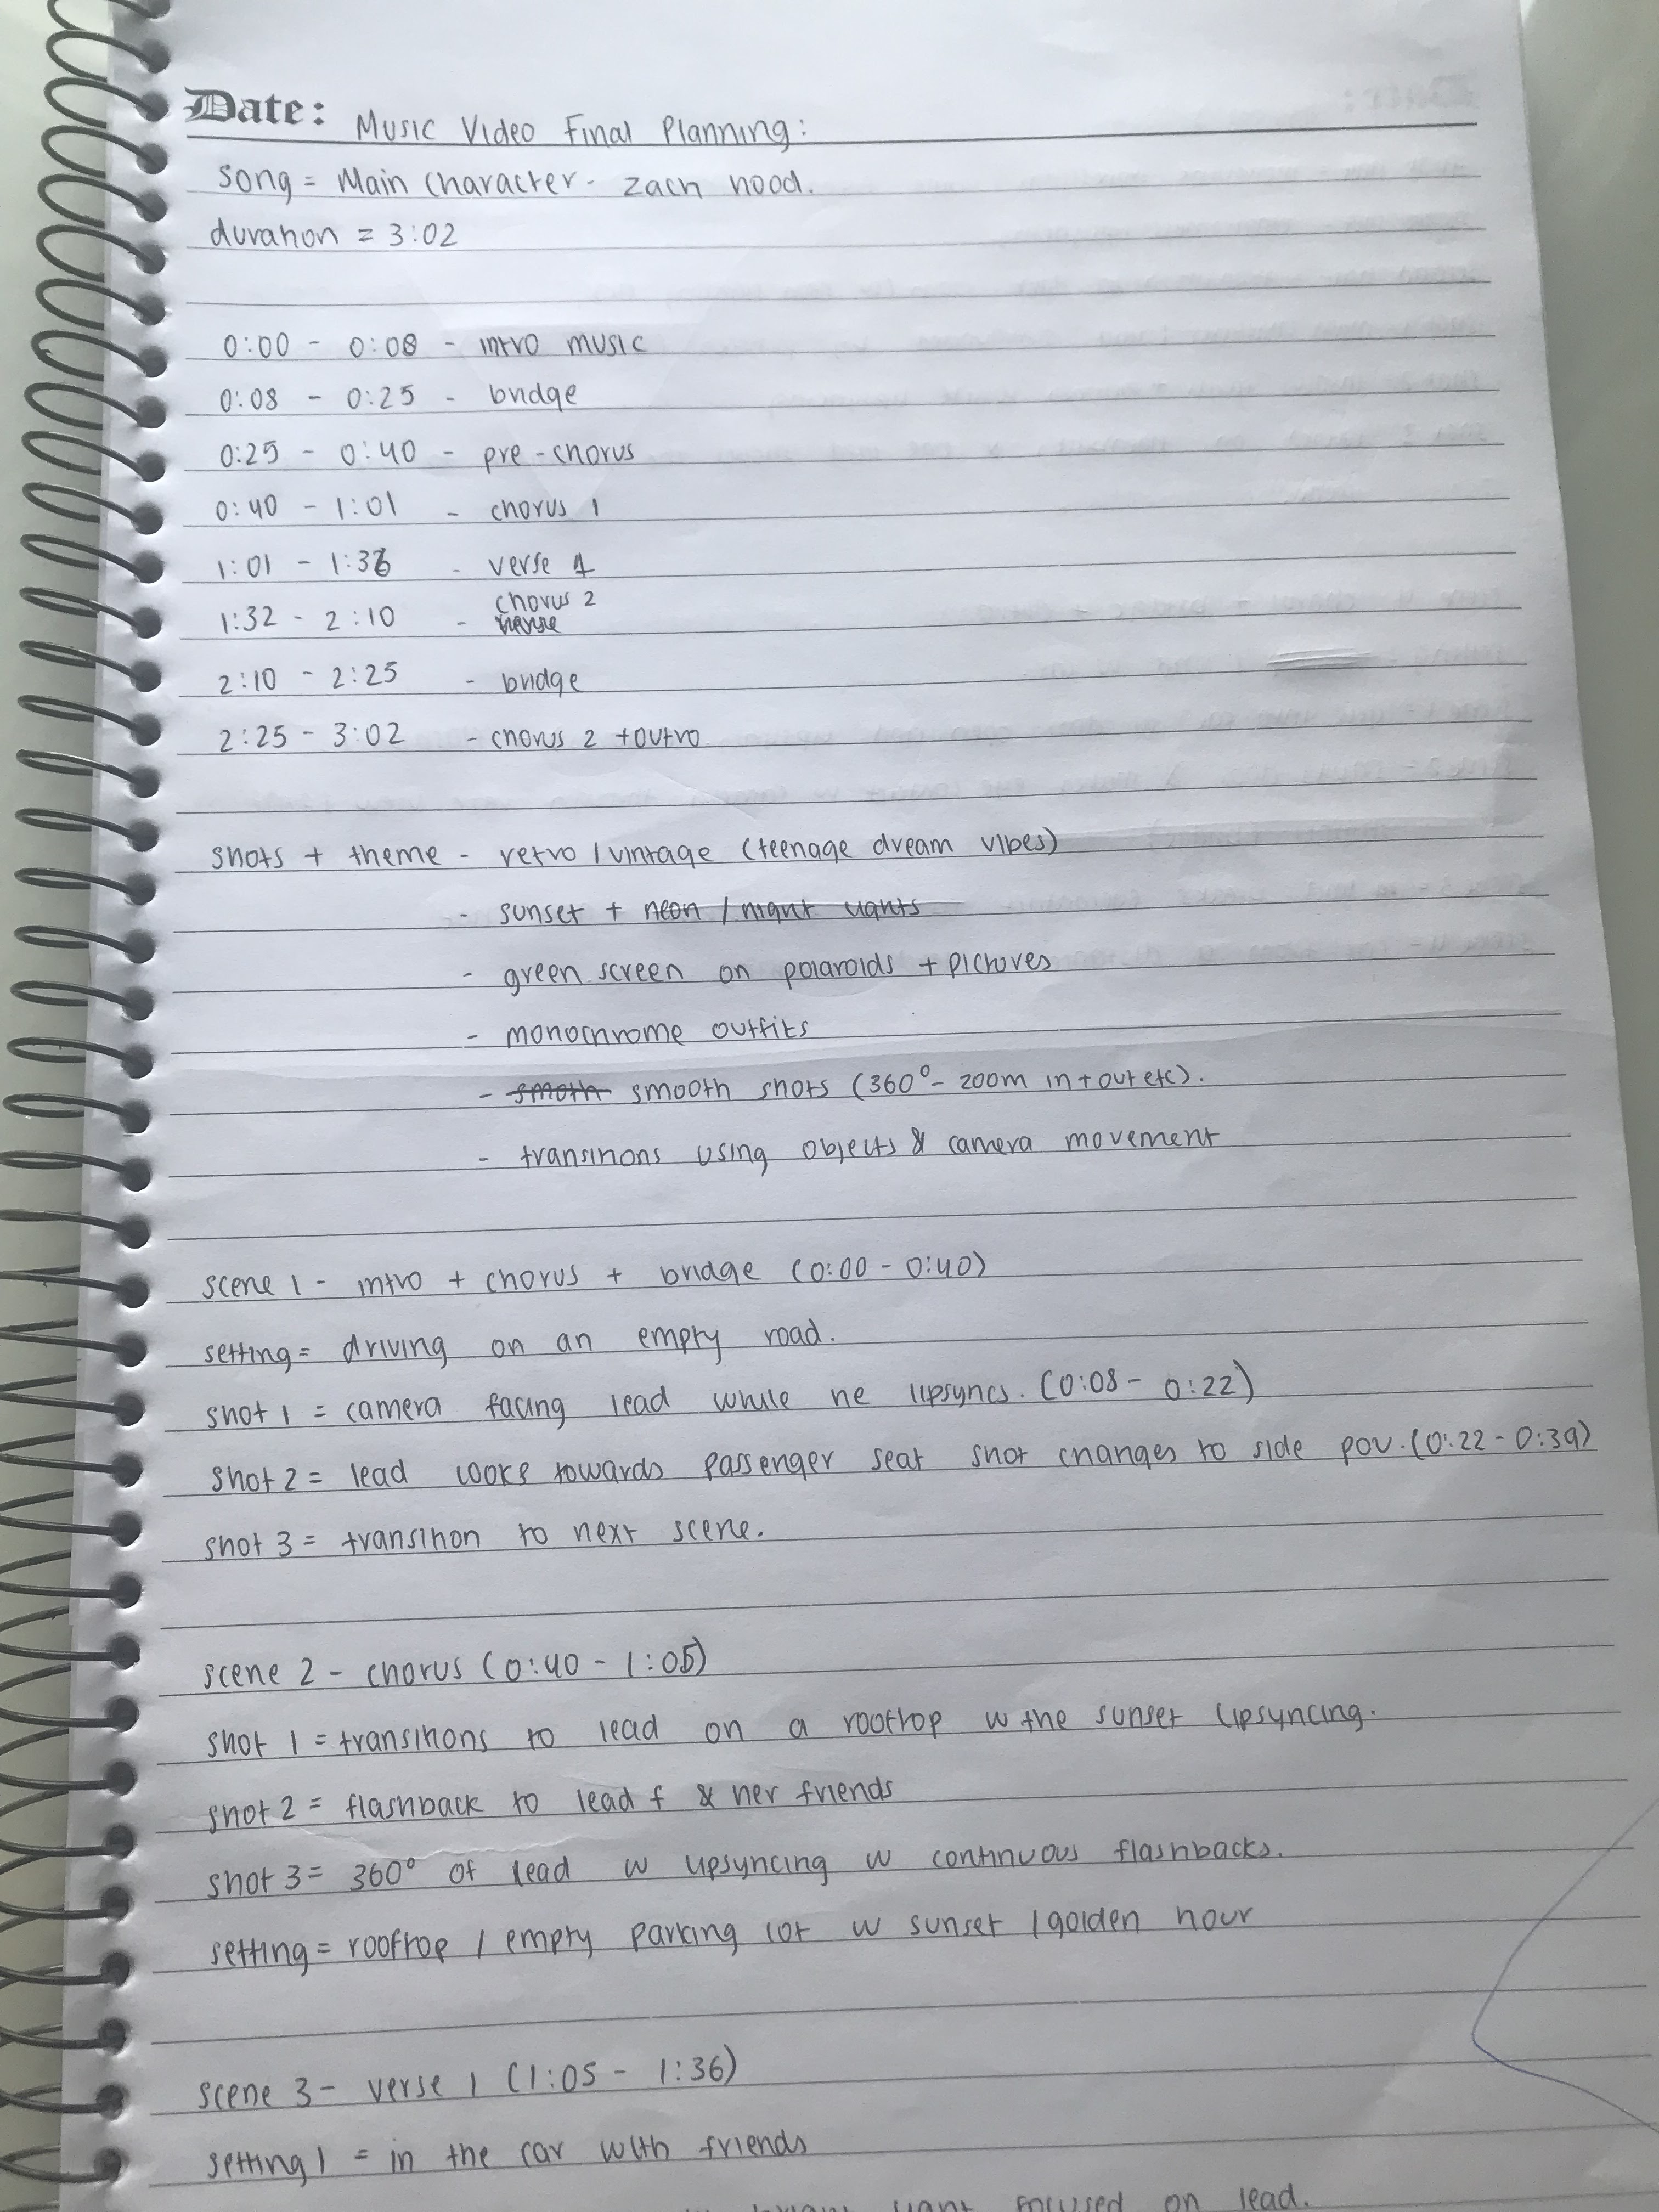 Date: Music Video Final Planning:
song = Main character - zach hood.
duration = 3:02
0:00 - 0:08 - intro music
0:08 - 0:25 - bridge
0:25 - 0:40 - pre-chorus
0:40 - 1:01 - chorus 1
1:01 - 1:36 - verse 1
chorus 2
1:32 - 2:10 - verse
2:10 - 2:25 - bridge
2:25 - 3:02 - chorus 2 + outro
shots + theme - retro / vintage (teenage dream vibes)
- sunset + neon / night lights
- green screen on polaroids + pictures
- monochrome outfits
- smoth smooth shots (360° - zoom in + out etc).
- transitions using objects & camera movement
scene 1 - intro + chorus + bridge (0:00 - 0:40)
setting = driving on an empty road.
shot 1 = camera facing lead while he lipsyncs. (0:08 - 0:22)
shot 2 = lead looks towards passenger seat shot changes to side pov. (0:22 - 0:39)
shot 3 = transition to next scene.
scene 2 - chorus (0:40 - 1:05)
shot 1 = transitions to lead on a rooftop w the sunset lipsyncing.
shot 2 = flashback to lead f & her friends
shot 3 = 360° of lead w lipsyncing w continuous flashbacks.
setting = rooftop / empty parking lot w sunset / golden hour
scene 3 - verse 1 (1:05 - 1:36)
setting 1 = in the car with friends
light focused on lead.